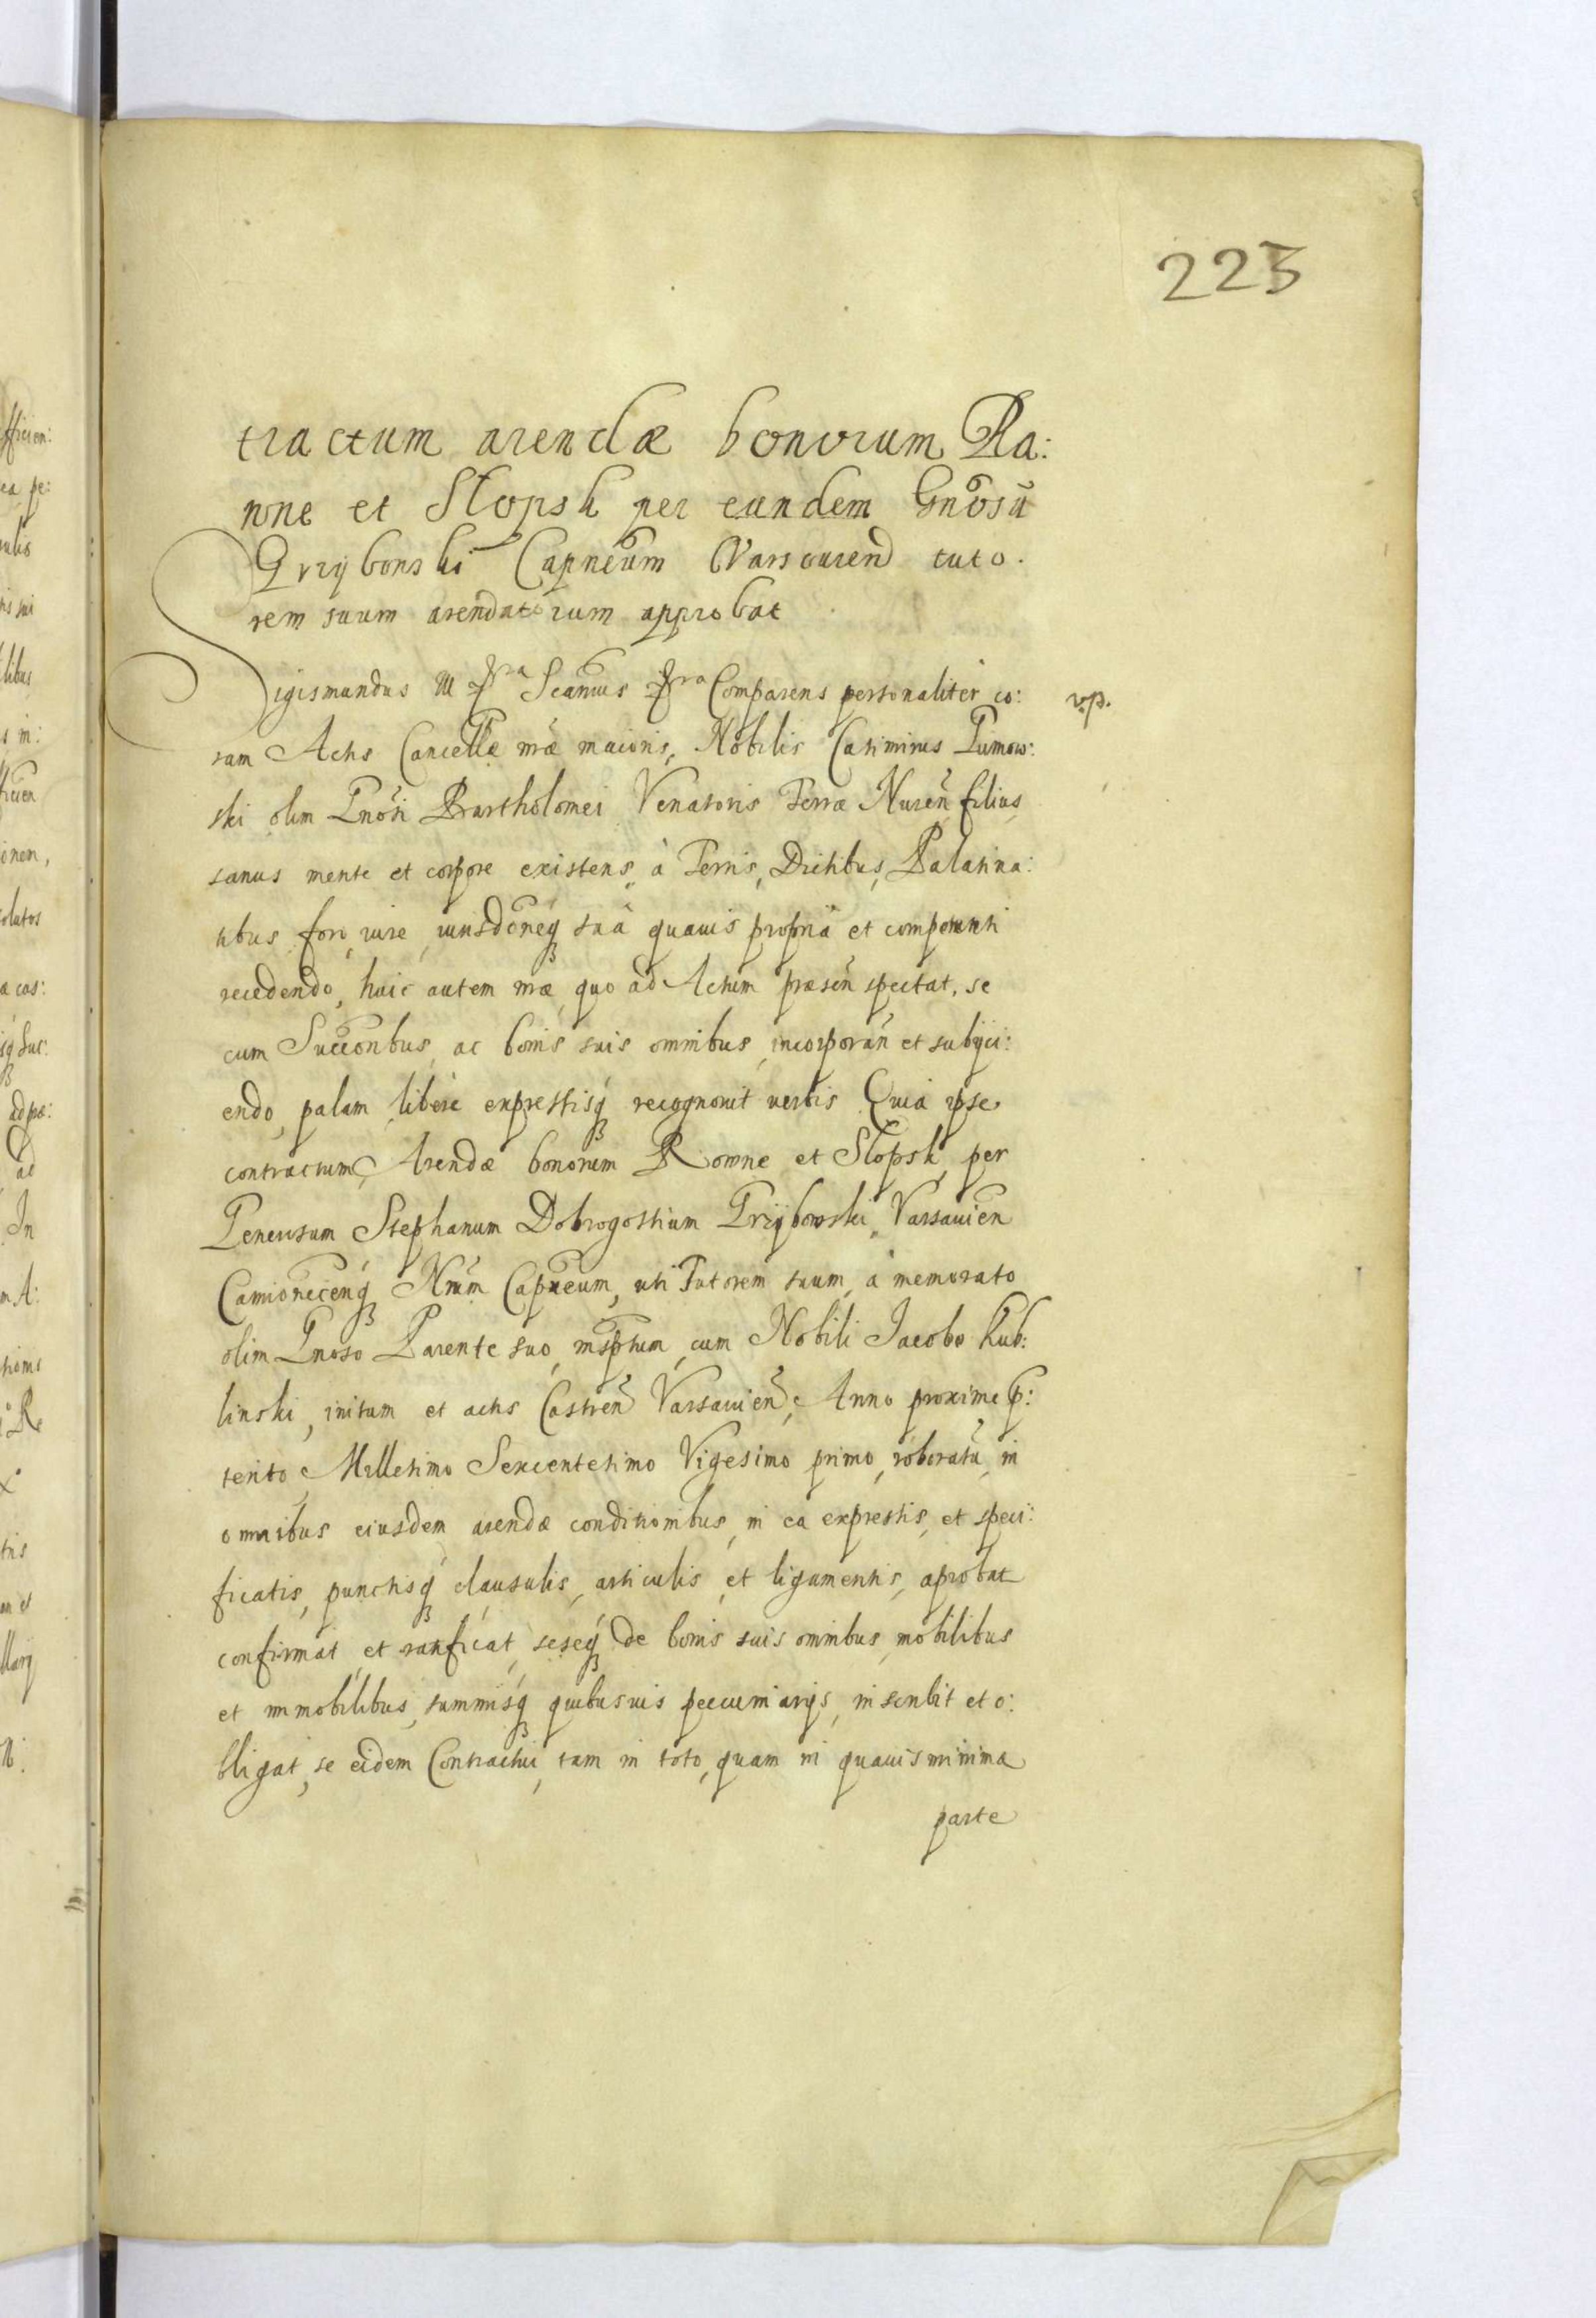 223
tractum arendæ bonorum Ra:
wne et Słopsk per eundem Gnosũ
Grzybowski Capneum Varsavien tuto.
rem suum arendatorum approbat
Sigismundus III Comparens personaliter co:
v.p.
ram Actis Cancellæ nræ maioris, Nobilis Casimirus Pumow:
ski olim Gnosi Bartholomei Venatoris Terræ Nuren filius
sanus mente et corpore existens, à Terris, Dictibus, Palatina:
tibus foro, iure iurisdoneq suâ quauis propriâ et competenti
recedendo, huic autem nræ quo ad Actum præsen spectat, se
cum Succonbus, ac bonis suis omnibus, incorporan et subijci:
endo, palam libere expressisq recognouit uerbis Quia ipse
contractum Arendæ bonorum Rowne et Słopsk, per
Generosum Stephanum Dobrogostium Grzybowski, Varsauien
Camioneceñq Nrum Capneum, uti Tutorem suum, à memorato
olim Gnoso Parente suo, cum Nobili Jacobo Kub:
linski, initum et actis Castren Varsauien, Anno proxime p:
terito Millesimo Sexcentesimo Vigesimo primo, roboratũ, in
omnibus eiusdem arendæ conditionibus, in ea expressis, et speci:
ficatis, punctisq clausulis, articulis, et ligamentis, aprobat
confirmat, et ratificat, seseq de bonis suis omnibus, mobilibus
et immobilibus, summisq quibusuis pecuniarijs, inscribit et o:
bligat, se eidem Contractui, tam in toto, quam in quauis minima
parte